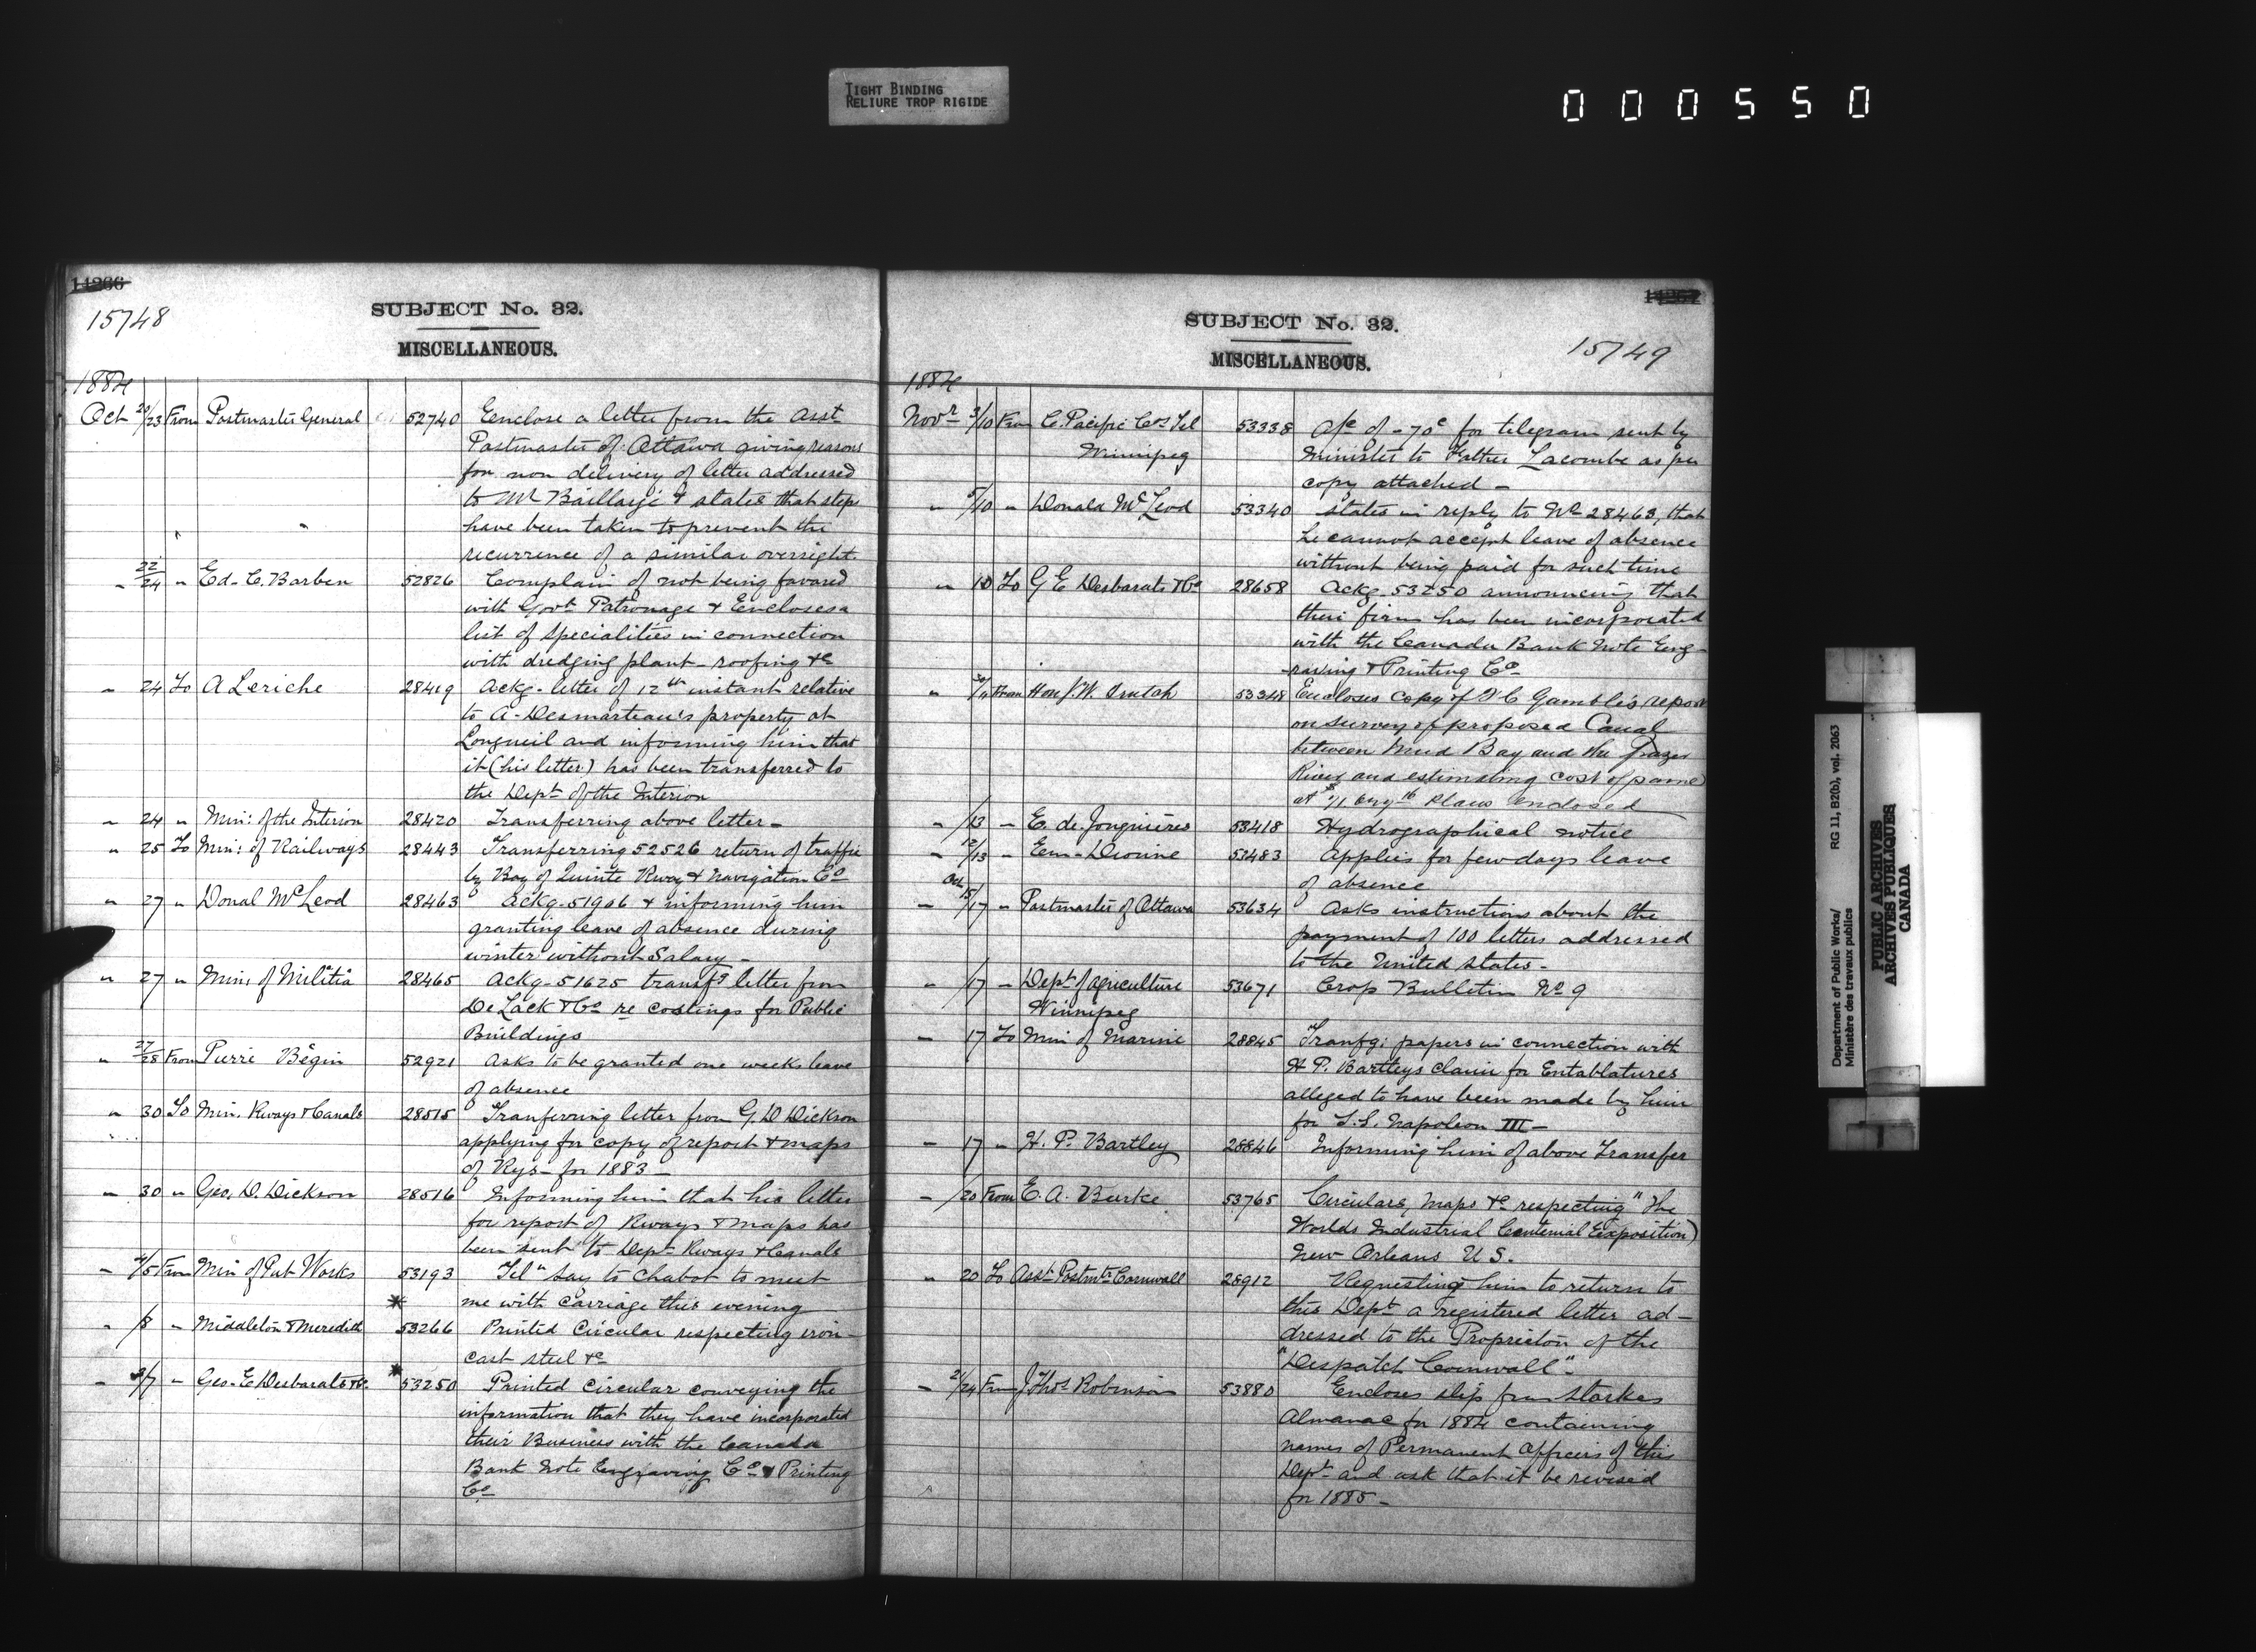 TIGHT BINDING
RELIURE TROP RIGIDE
000550
14266
15748
SUBJECT No. 32.
MISCELLANEOUS.
1884
Oct 20/23 From Postmaster General 52740 Eenclose a letter from the Asst
Postmaster of Ottawa giving reasons
for non delivery of letter addressed
to Mr Baillairjé & states that steps
have been taken to prevent the
recurrence of a similar oversight.
" 22/24 " Ed. C. Barben 52826 Complain of not being favored
with Govt Patronage & Encloses a
list of specialities in connection
with dredging plant - roofing &c
" 24 To A Leriche 28419 Ackg. letter of 12th instant relative
to A. Desmarteau's property at
Longueil and informing him that
it (his letter) has been transferred to
the Dept of the Interior
" 24 " Min: of the Interion 28420 Transferring above letter -
" 25 To Min: of Railways 28443 Transferring 52526 return of traffic
by Bay of Quinte Rway & Navigation Co
" 27 " Donal McLeod 28463 Ackg. 51906 & informing him
granting leave of absence during
winter without Salary -
" 27 " Min: of Militia 28465 Ackg. 51625 transfg letter from
De Lack & Co re castings for Public
Buildings
" 27/28 From Pierre Bégin 52921 Asks to be granted one weeks leave
of absence
" 30 To Min. Rways & Canals 28515 Tranferring letter from G. D. Dickson
applying for copy of report & maps
of Rys - for 1883 -
" 30 " Geo. D. Dickson 28516 Informing him that his letter
for report of Rways & maps has
been sent to Dept Rways & Canals
" 4/5 From Min of Pub Works 53193 Tel" Say to Chabot to meet
* me with carriage this evening
" /8 " Middleton & Meredith 53266 Printed Circular respecting iron-
cast steel &c
*
" /7 " Geo. E. Desbarats & Co. 53250 Printed Circular conveying the
information that they have incorporated
their Business with the Canada
Bank Note Engraving Co & Printing
Co
SUBJECT No. 32.
15749
MISCELLANEOUS.
1884
Novr 3/10 From C. Pacific Cos Tel 53338 A/c of - 70c for telegram sent by
Winnipeg Minister to Father Lacombe as per
copy attached -
" 5/10 " Donald McLeod 53340 States in reply to No 28463, that
he cannot accept leave of absence
without being paid for such time
" 10 To G E Desbarats & Co 28658 Ackg. 53250 announcing that
their firm has been incorporated
with the Canada Bank Note Eng-
raving & Printing Co
" From Hon J. W. Trutch 53348 Encloses copy of F C Gamble's report
on survey of proposed Canal
between Mud Bay and the Frazer
River and estimating cost of same
at Plans enclosed
" /13 " E. de Jonquières 53418 Hydrographical notice
" 12/13 " Em. Devine 53483 Applies for few days leave
of absence
" Oct 15/17 " Postmaster of Ottawa 53634 Asks instructions about the
payment of 100 letters addressed
to the United States -
" /17 " Dept of Agriculture 53671 Crop Bulletin No 9
Winnipeg
" 17 To Min of Marine 28845 Tranfg: papers in connection with
H P. Bartleys claim for Entablatures
alleged to have been made by him
for S.S. Napoleon III -
" 17 " H. P. Bartley 28846 Informing him of above Transfer
" /20 From E. A. Burke 53765 Circulars, Maps &c respecting "The
Worlds Industrial Centennial Exposition)
New Orleans U S.
" 20 To Asst Postmtr Cornwall 28912 Requesting him to return to
this Dept a registered letter ad-
dressed to the Proprietor of the
"Despatch Cornwall".
" 21/24 From J Thos Robinson 53880 Encloses slip from Starkes
Almanac for 1884 containing
names of Permanent Officers of this
Dept and ask that it be revised
for 1885 -
Department of Public Works/ RG 11, B2(b), vol. 2063
Ministère des travaux publics
PUBLIC ARCHIVES
ARCHIVES PUBLIQUES
CANADA